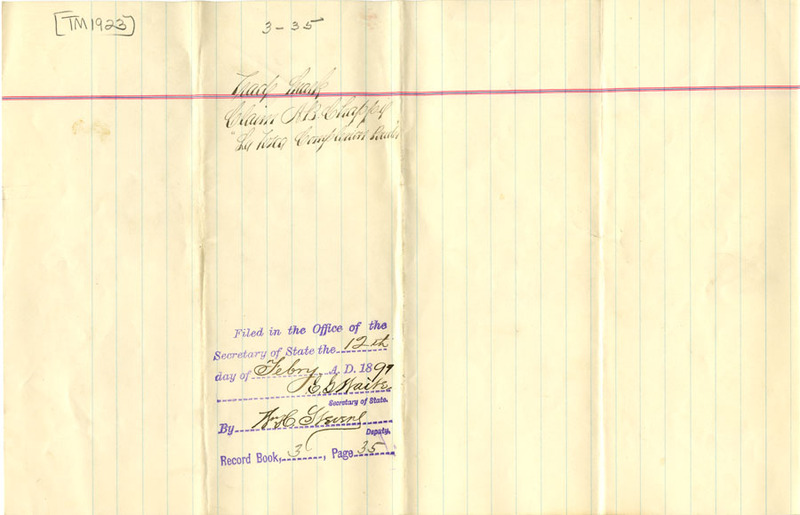 [TM1923]
3-35
Trade Mark
Claim A.B. Chappel
"La Tosca Complexion
Filed in the Office of the
Secretary of State the 12th
day of Febry A. D. 1897
E G Waite
Secretary of State.
By Wm C. Stevens
Deputy.
Record Book, 3, Page 35